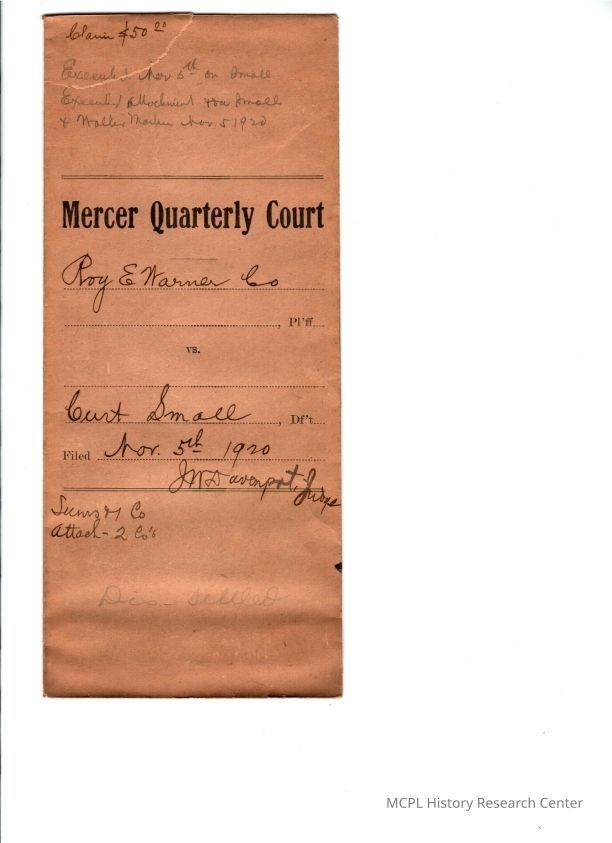 Claim $50.00
Executed Nov 5th on Small
Executed attachment on Small
& Walter Nov 5 1920
Mercer Quarterly Court
Roy E Warner Co
, Pl'ff
vs.
Curt Small , Df't.
Filed Nov. 5th 1920
JW Davenport, Judge
Sums & 1 Co
Attach - 2 Co's
Dis - settled
MCPL History Research Center